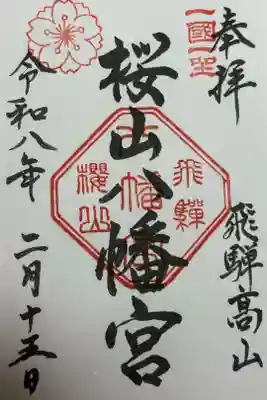 奉拝
飛騨高山
一國一社
桜山八幡宮
飛騨
八幡
櫻山
令和八年 二月十五日